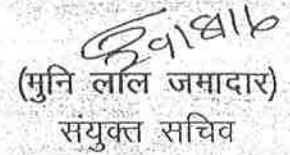 (मुनि लाल जमादार)
संयुक्त सचिव